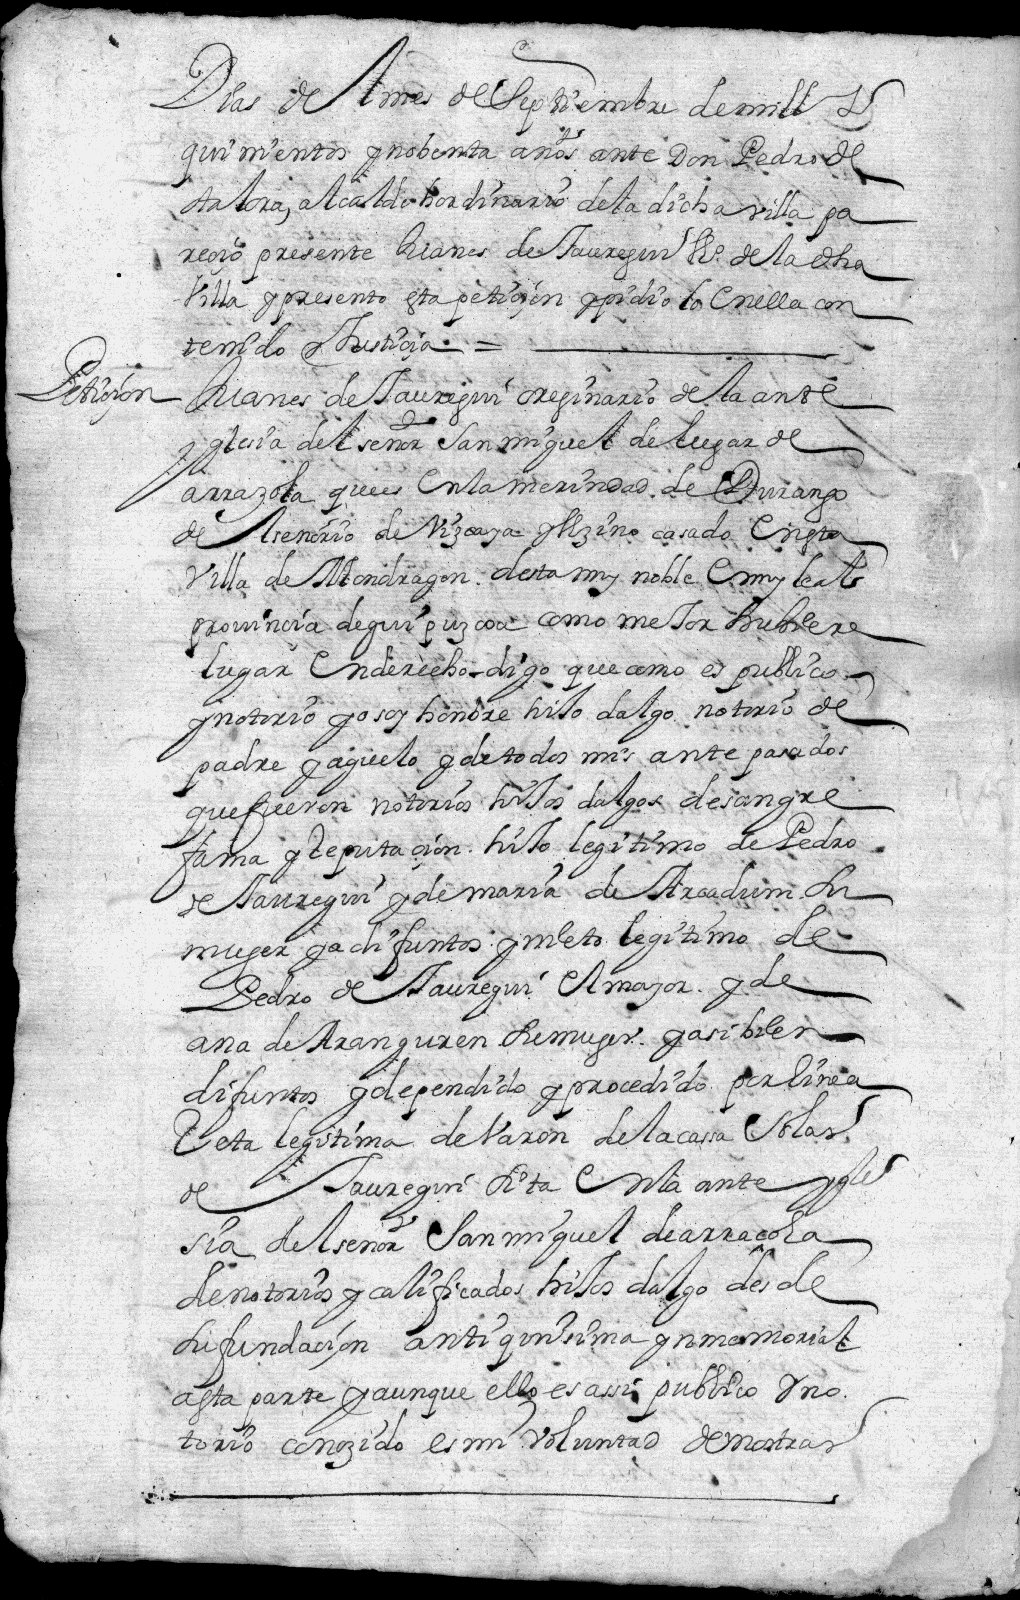 Dias del mes de Septiembre de mill y
quinientos y nobenta años ante Don Pedro de
otalora, alcalde hordinario de la dicha villa pa
reçio presente Juanes de Jauregui Vº de la dha
Villa y presento esta petiçion y pidio lo en ella con
tenido y Justiçia =
Petiçion
Juanes de Jauregui oreginario de la ante
yglesia del señor San miguel de lugar de
arrazola que es en la merindad de Durango
del senorio de Vizcaya y Vezino casado en esta
Villa de Mondragon desta muy noble e muy leal
prouinçia de guipuzcoa como mejor hubiere
lugar en derecho digo que como es publico
y notorio yo soy hombre hijo dalgo notorio de
padre y aguelo y de todos mis ante pasados
que fueron notorios hijos dalgos de sangre
fama y Reputaçion hijo legitimo de Pedro
de Jauregui y de maria de Arcadium Su
muger ya difuntos y nieto legitimo de
Pedro de Jauregui el mayor y de
ana de Aranguren Su muger y asi bien
difuntos y dependido y procedido por linea
Reta legitima de Varon de la cassa Solar
de Jauregui Sita en la ante ygle
sia del señor San miguel de arraçola
de notorios y calificados hijos dalgo desde
Su fundaçion antiquisima ynmemorial
a esta parte y aunque ello es assi publico y no
torio conozido es mi voluntad de mostrar